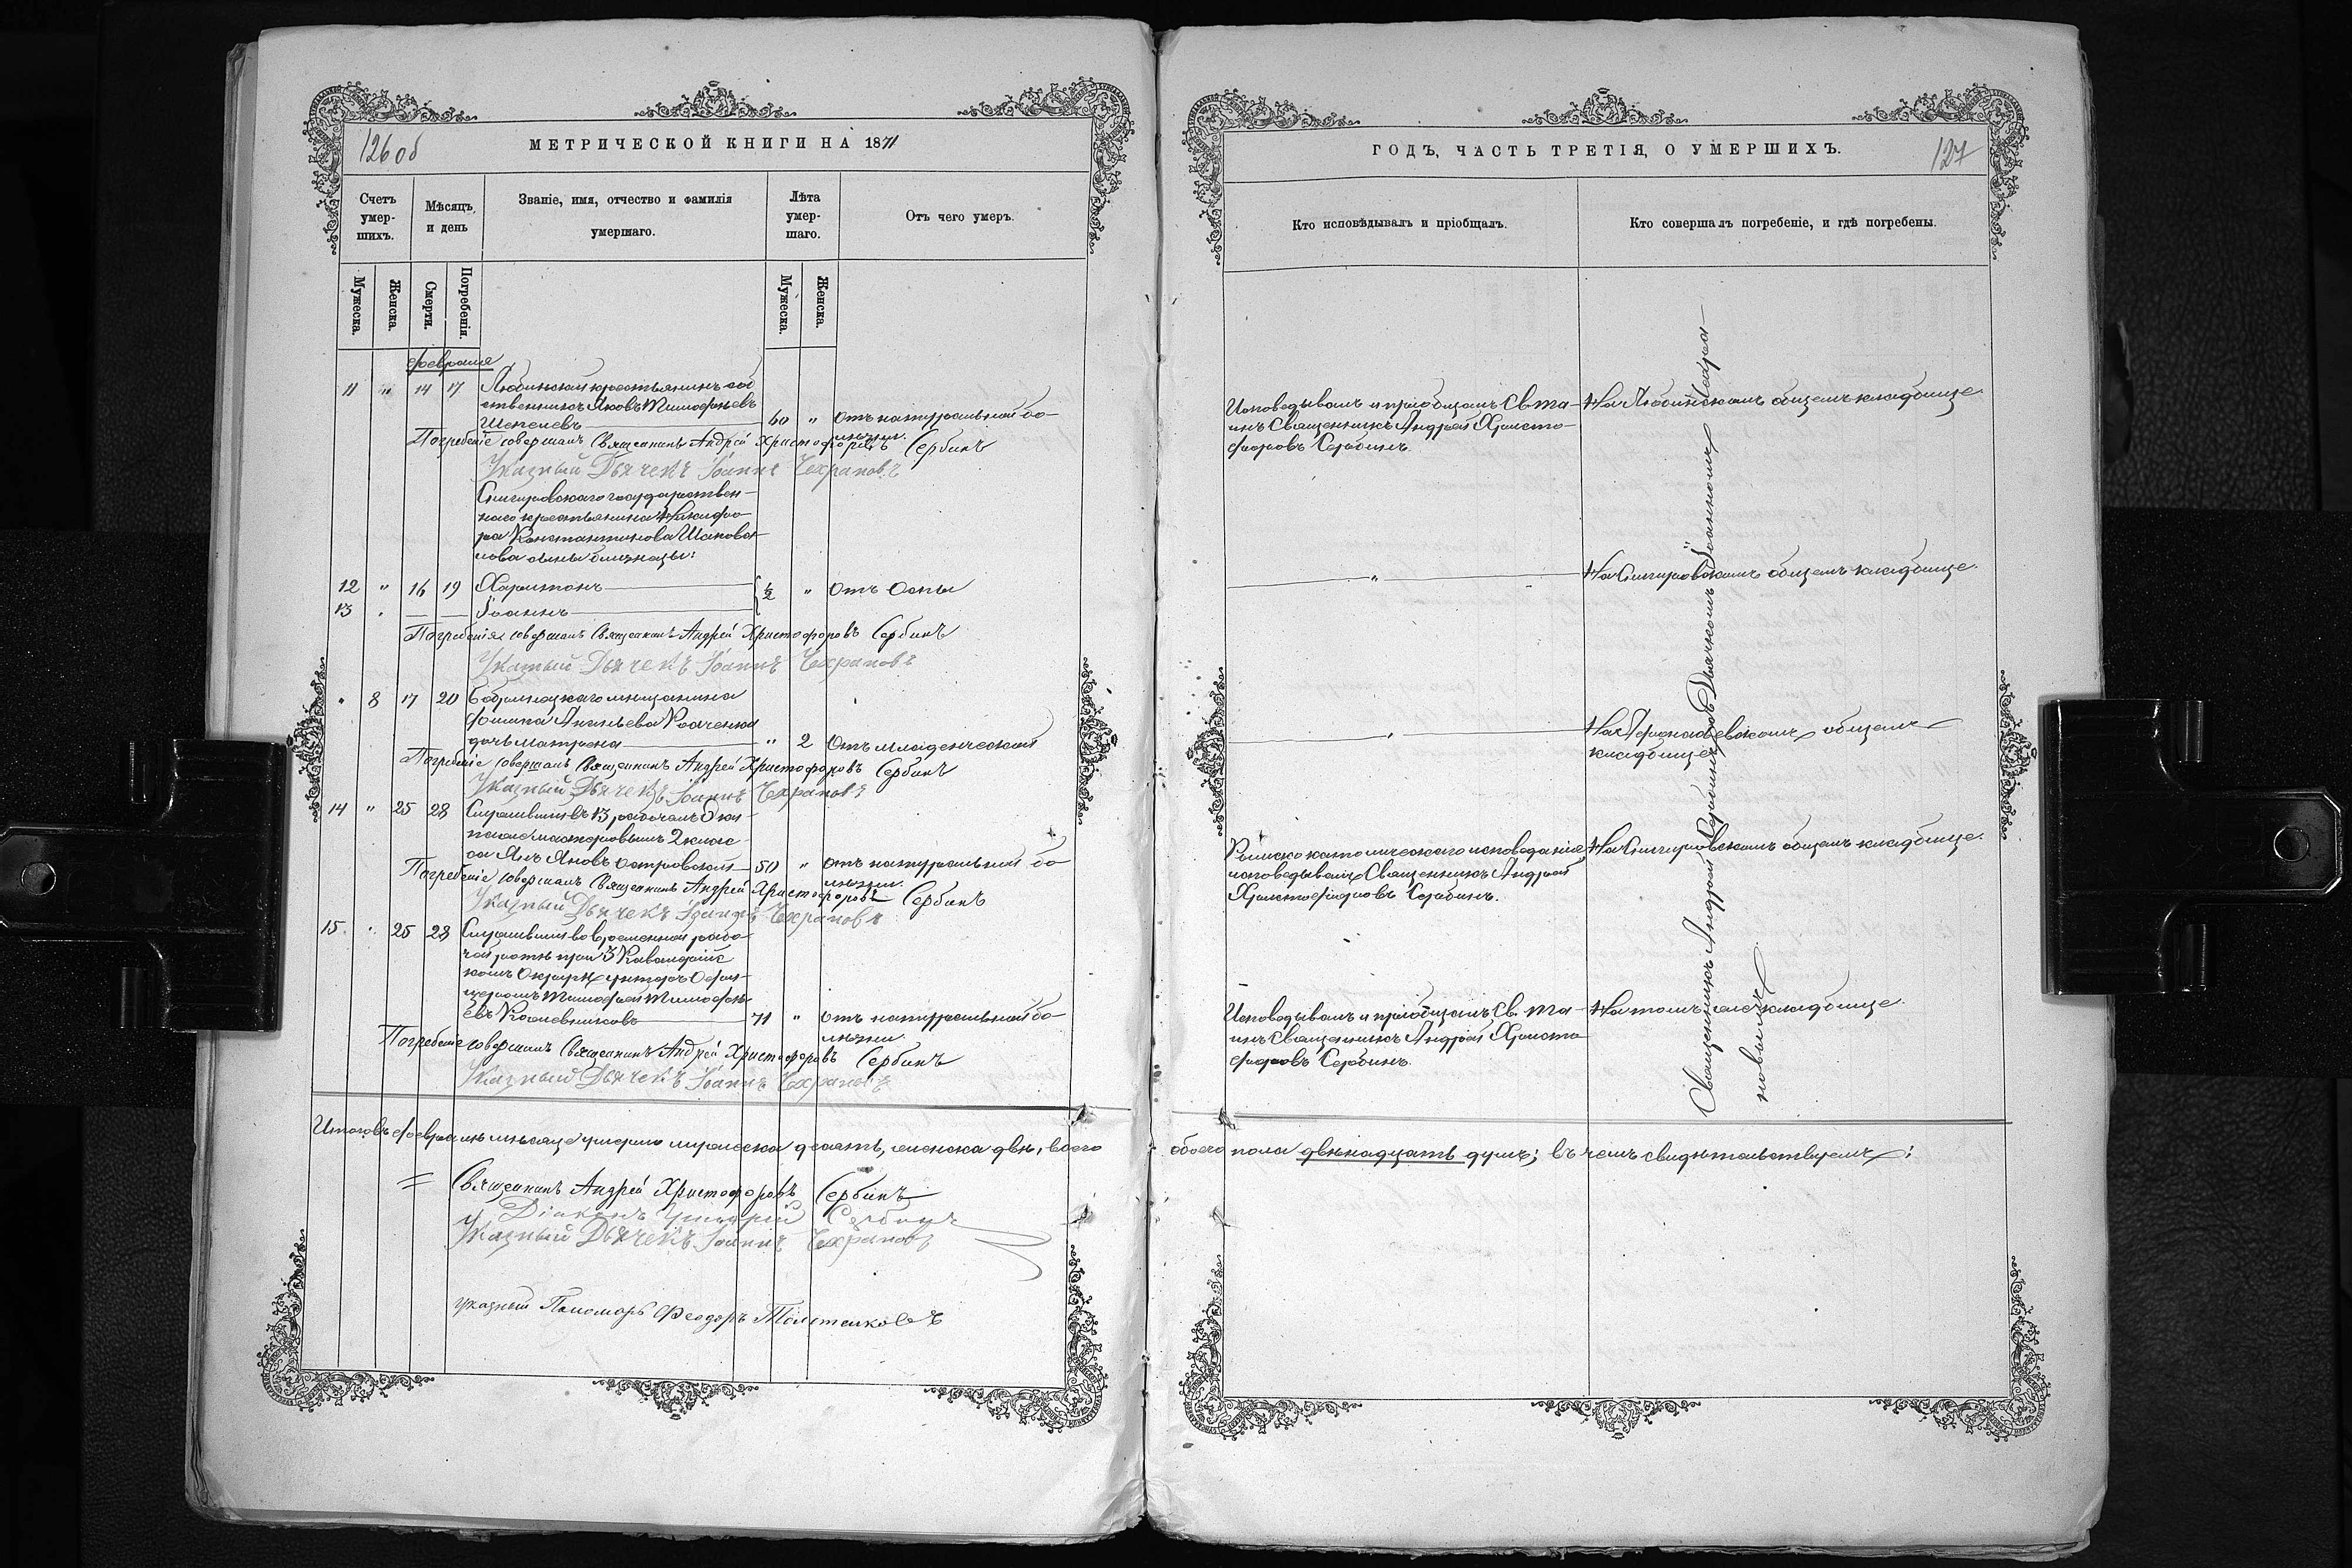 126 об
МЕТРИЧЕСКОЙ КНИГИ НА 1871
Счетъ умер-шихъ.
Мѣсяцъ и день
Званіе, имя, отчество и фамилія умершаго.
Лѣта умер-шаго.
Отъ чего умеръ.
Мужеска.
Женска.
Смерти.
Погребенія.
Мужеска.
Женска.
февраля
11 " 14 17 Любинскій крестьянинъ соб
ственникъ Яковъ Тимофѣевъ
Шепелевъ 60 " отъ натуральной бо
лѣзни.
Погребеніе совершалъ Священникъ Андрей Христофоровъ Сербинъ
Указный Дьячекъ Іоаннъ Чехрановъ
Снигировскаго государствен-
наго крестьянина Никифо-
ра Константинова Шапова-
лова сыны близнецы:
12 " 16 19 Харитонъ ½ " отъ Оспы
13 " — — Іоаннъ
Погребенія совершалъ Священникъ Андрей Христофоровъ Сербинъ
Указный Дьячекъ Іоаннъ Чехрановъ
" 8 17 20 Бобринецкаго мещанина
Фомы Ананьева Косченка
дочь Матрена " 2 Отъ младенческой
Погребеніе совершалъ Священникъ Андрей Христофоровъ Сербинъ
Указный Дьячекъ Іоаннъ Чехрановъ
14 " 25 28 Служившій въ 13 рабочемъ Эки
пажѣ мастеровымъ 2 клас-
са Янъ Яновъ Островскій 50 " отъ натуральной бо
лѣзни.
Погребеніе совершалъ Священникъ Андрей Христофоровъ Сербинъ
Указный Дьячекъ Іоаннъ Чехрановъ
15 " 25 28 Служившій во временной рабо-
чей ротѣ при 3 Кавалерійс
комъ Округѣ унтеръ Офи-
церомъ Тимофей Тимофѣ-
евъ Кожевниковъ 71 " отъ натуральной бо-
лѣзни.
Погребеніе совершалъ Священникъ Андрей Христофоровъ Сербинъ
Указный Дьячекъ Іоаннъ Чехрановъ
Итого въ февралѣ мѣсяце умерло мужеска десять, женска двѣ, всего
Священникъ Андрей Христофоровъ Сербинъ
Діаконъ Григорій Сербинъ
Указный Дьячекъ Іоаннъ Чехрановъ
указный Пономарь Феодоръ
ГОДЪ, ЧАСТЬ ТРЕТІЯ, О УМЕРШИХЪ.
127
Кто исповѣдывалъ и пріобщалъ.
Кто совершалъ погребеніе, и гдѣ погребены.
Исповедывалъ и пріобщалъ Св. Та-
инъ Священникъ Андрей Христо-
форовъ Сербинъ.
На Любинскомъ общемъ кладбище
"
На Снигировскомъ общемъ кладбище.
"
общемъ
кладбище
Римско католическаго исповеданія,
исповедывалъ Священникъ Андрей
Христофоровъ Сербинъ.
На Снигировскомъ общемъ кладбище.
Исповедывалъ и пріобщалъ Св. Та-
инъ Священникъ Андрей Христо
форовъ Сербинъ.
На томъ же кладбище
Священникъ Андрей Сербинъ съ Дьячкомъ Іоанномъ Чехра-
новымъ
обоего пола двѣнадцать душъ; въ чемъ свидѣтельствуемъ: